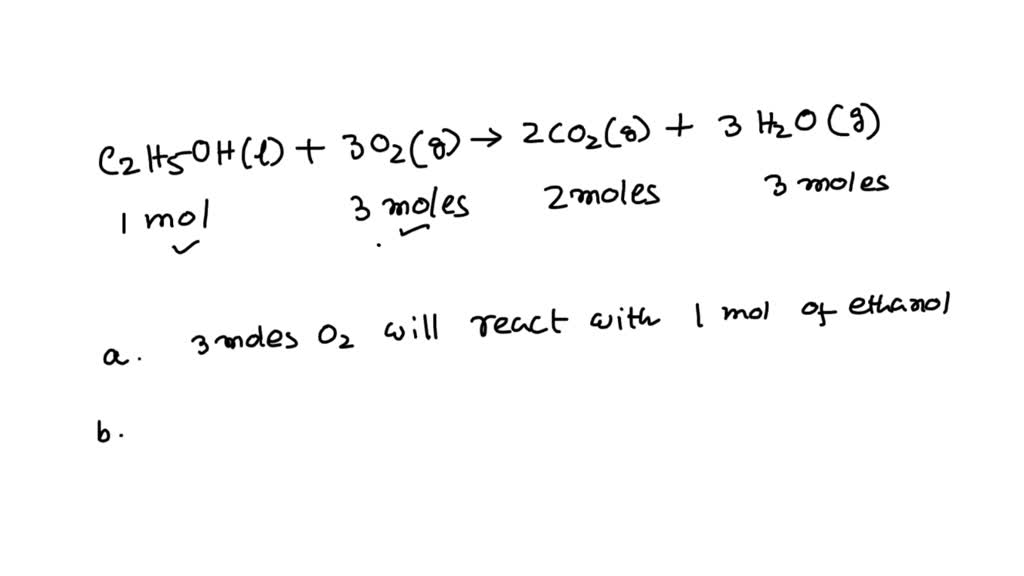 C2H5OH(l) + 3O2(g) → 2CO2(g) + 3H2O(g)
1 mol 3 moles 2 moles 3 moles
a. 3 moles O2 will react with 1 mol of ethanol
b.